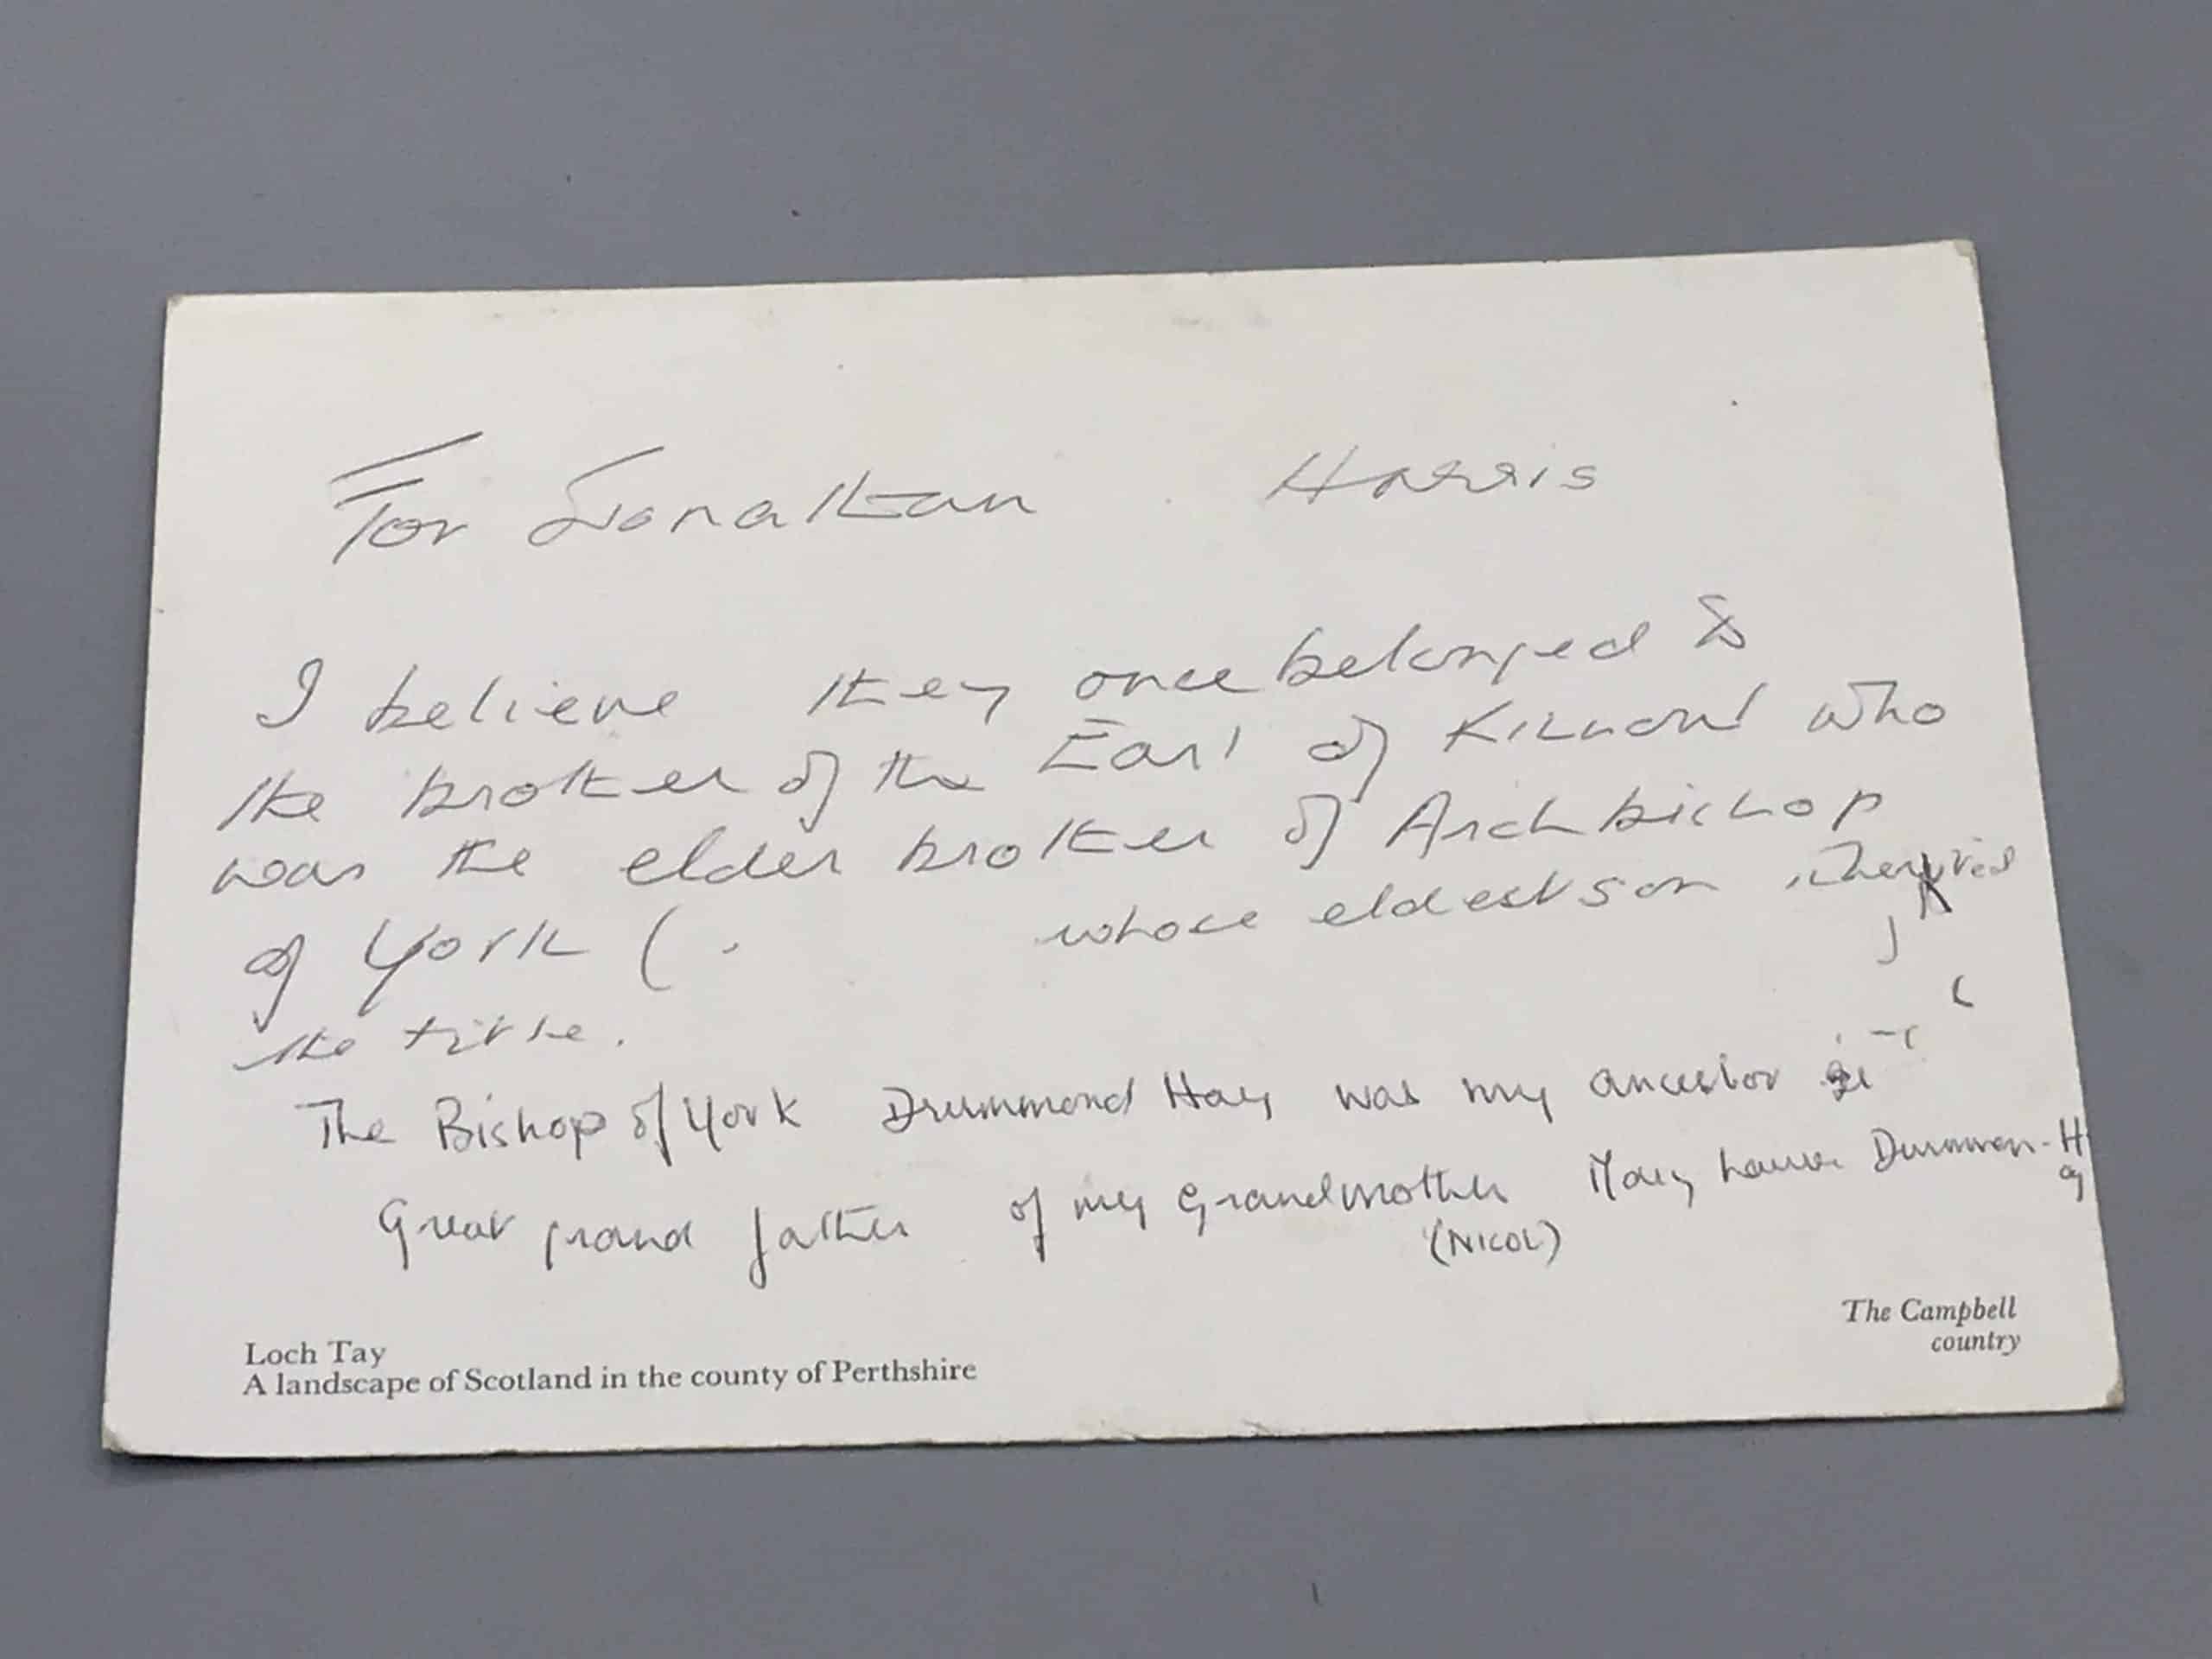 For Jonathan Harris
I believe they once belonged to
the brother of the Earl of Kinnoul who
was the elder brother of Archbishop
of York ( whose eldest son
the title.
The Bishop of York Drummond Hay was my ancestor
Great grand father of my Grandmother Mary
(NICOL)
Loch Tay
A landscape of Scotland in the county of Perthshire
The Campbell
country